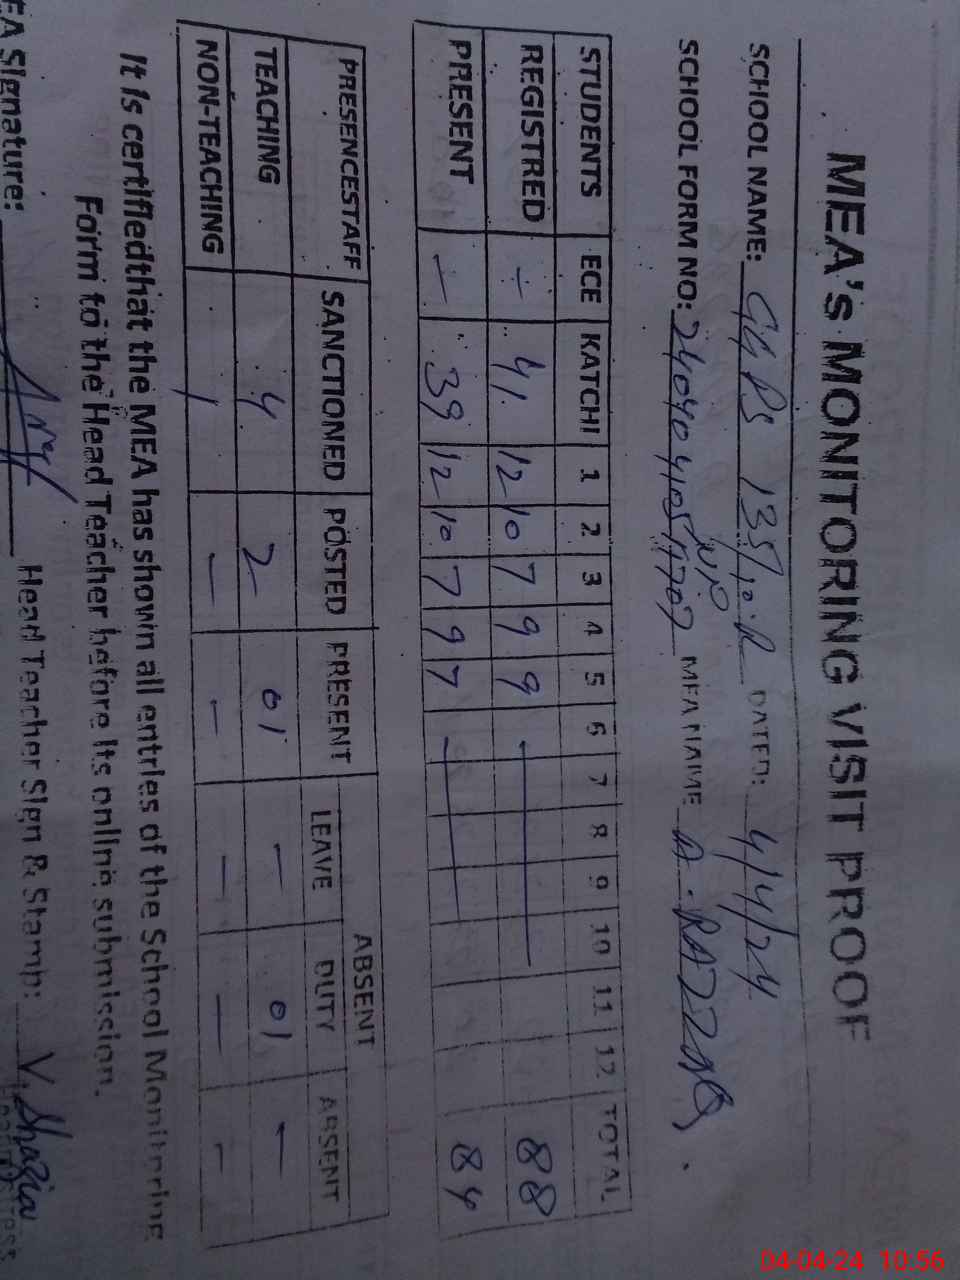 MEA's MONITORING VISIT PROOF
SCHOOL NAME: GGPS 135/10.R DATED: 4/4/24
SCHOOL FORM NO: MEA NAME A. RAZZAQ.
STUDENTS ECE KATCHI 1 2 3 4 5 6 7 8 9 10 11 12 TOTAL
REGISTRED - 41 12 10 7 9 9 88
PRESENT - 39 12 10 7 9 7 84
PRESENCESTAFF SANCTIONED POSTED PRESENT ABSENT
LEAVE DUTY ABSENT
TEACHING 4 2 01 - 01 -
NON-TEACHING 1 - - - - -
It is certifiedthat the MEA has shown all entries of the School Monitoring
Form to the Head Teacher before its online submission.
EA Signature: Head Teacher Sign & Stamp: V. Shazia
04-04-24 10:56